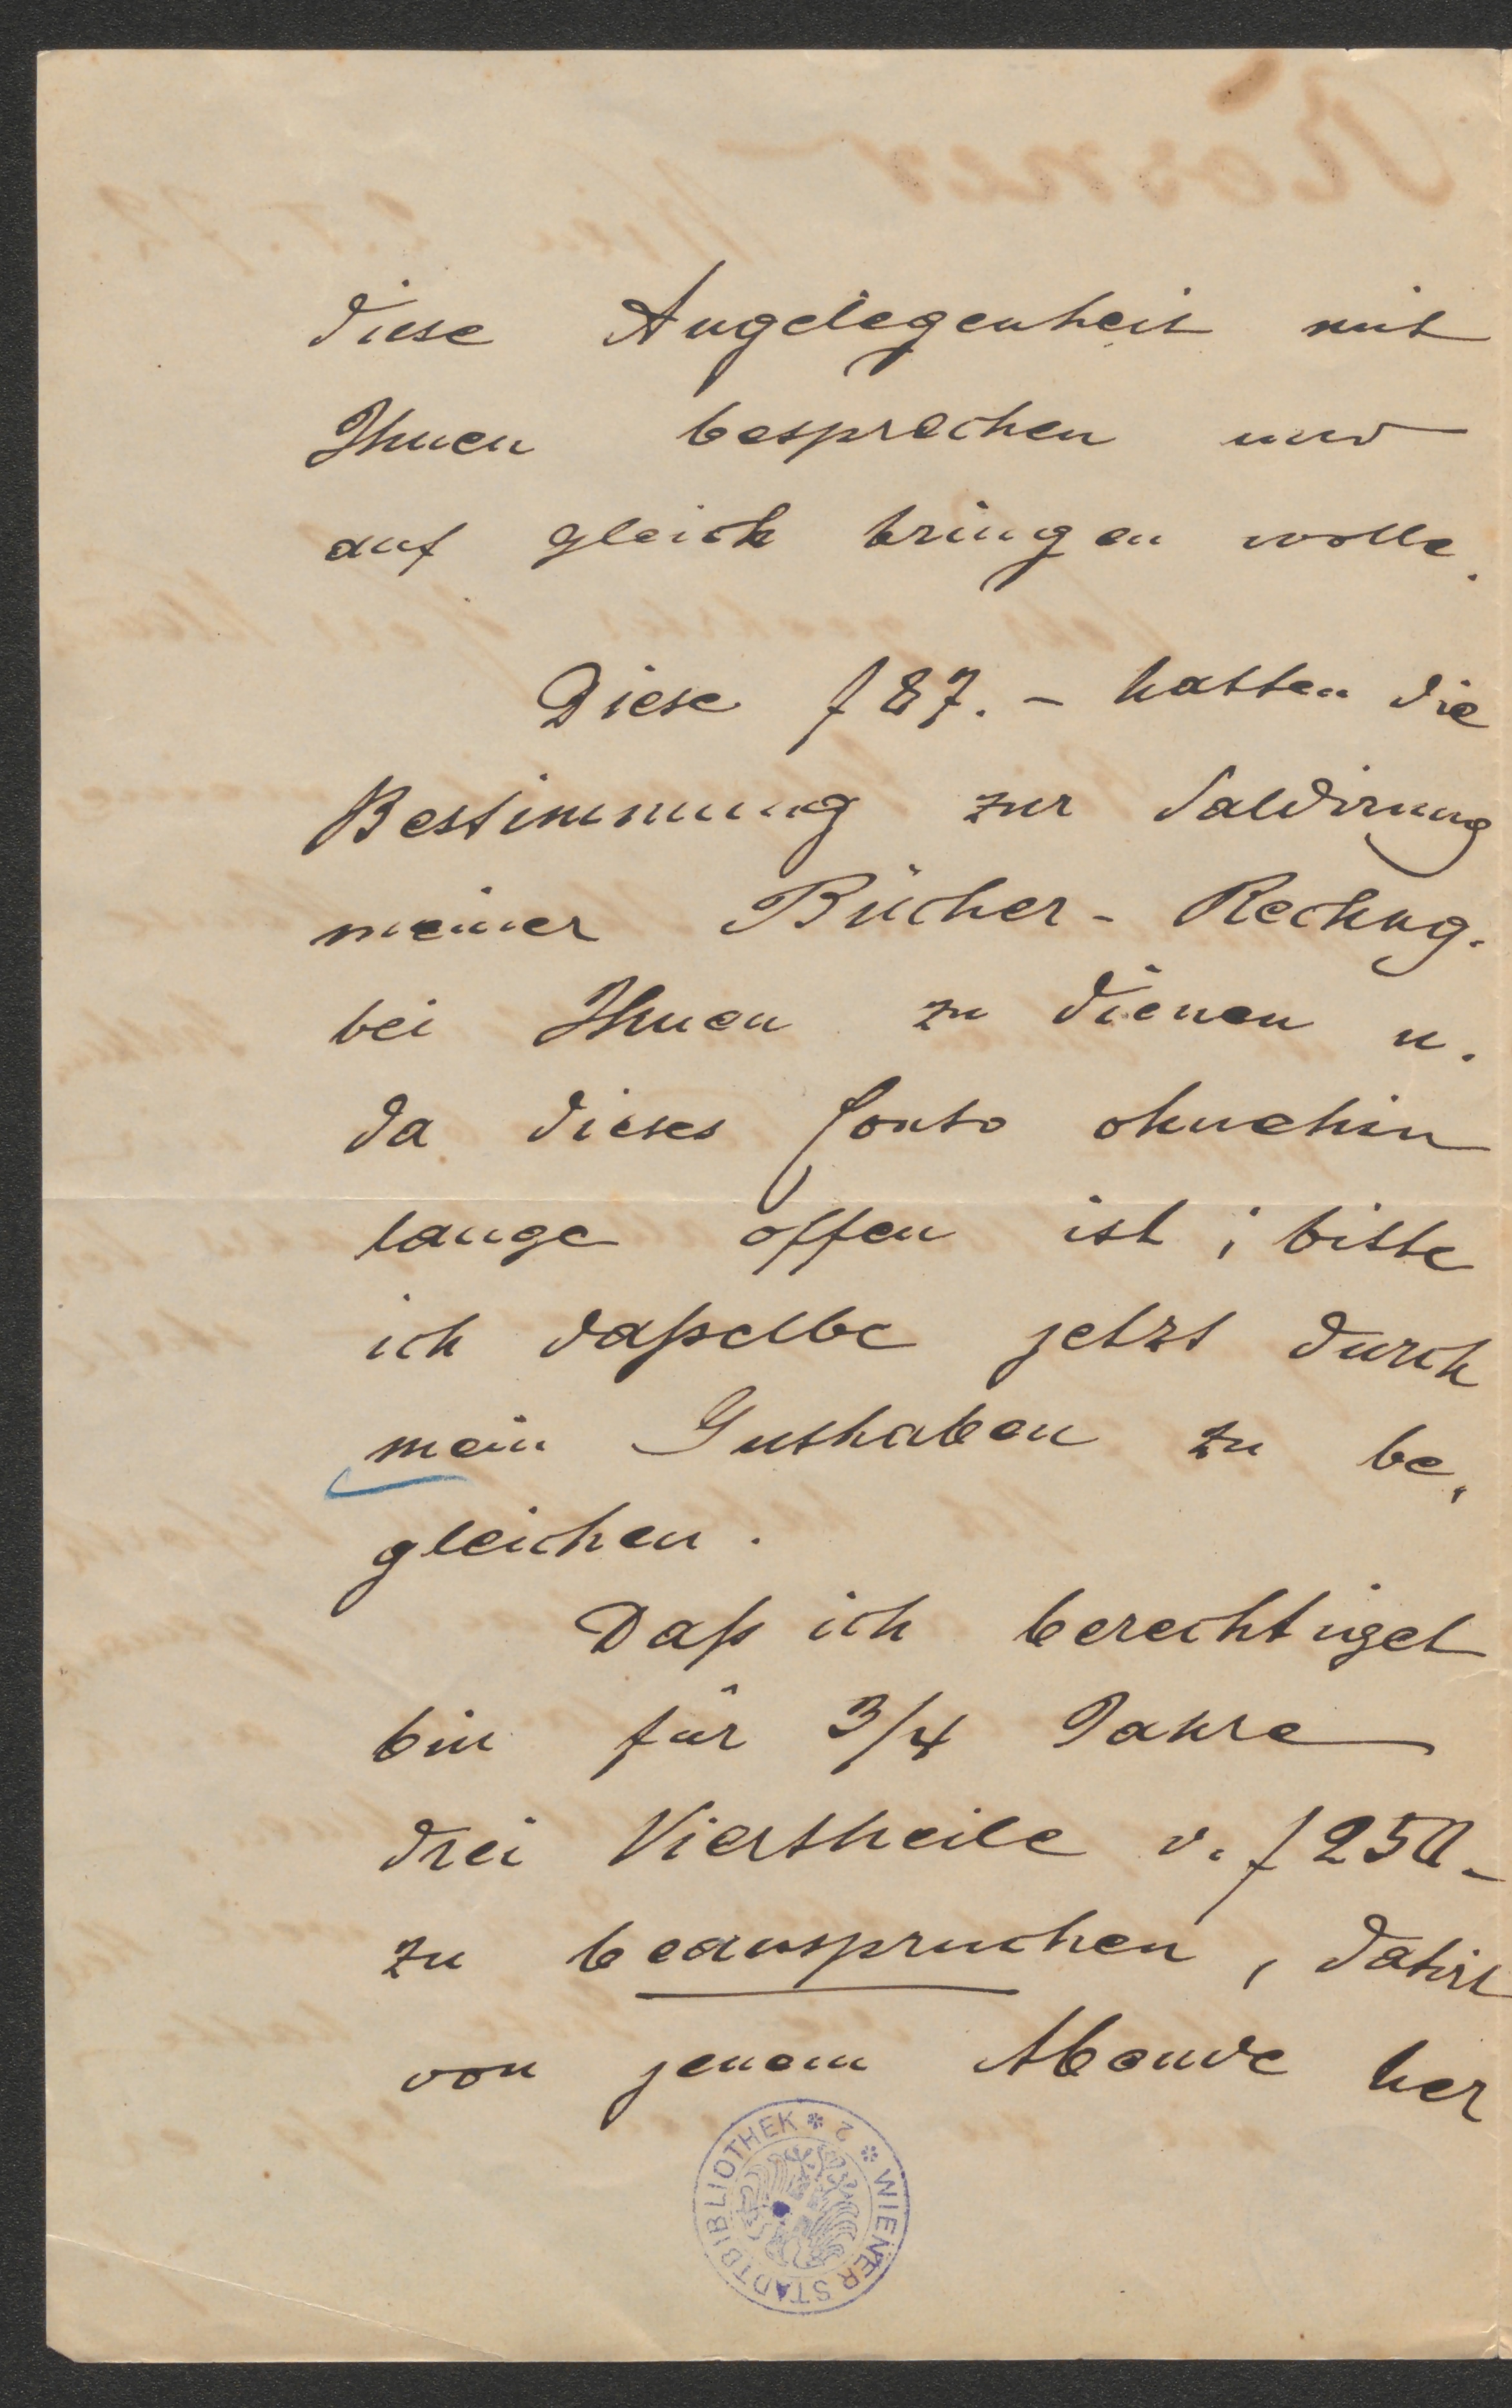 diese Angelegenheit mit
Ihnen besprechen und
auf gleich bringen wolle.
Diese f 87. – hatten die
Bestimmung zur Saldirung
meiner Bücher - Rechng.
bei Ihnen zu dienen u.
da dieses Conto ohnehin
lange offen ist ; bitte
ich daßselbe jetzt durch
mein Guthaben zu be„
gleichen.
Daß ich berechtiget
bin für 3/4 Jahre
drei Viertheile v. f 250 -
zu beanspruchen, datirt
von jenem Abende her
WIENER STADTBIBLIOTHEK * 2 *